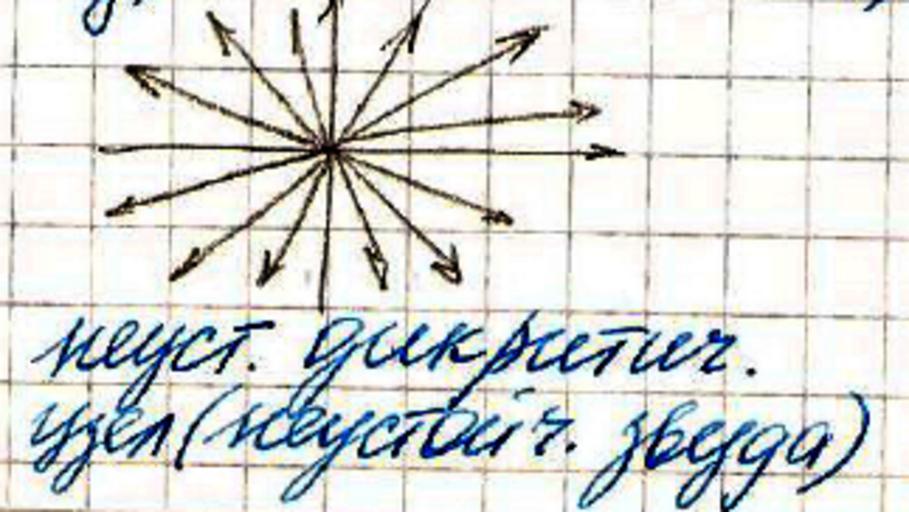 неуст. дикритич.
узел (неустойч. звезда)